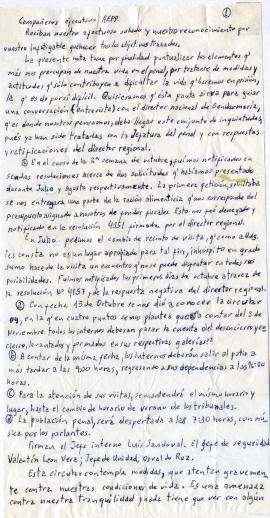 ①
Compañeros ejecutivo AFPP.
Reciban nuestro afectuoso saludo y nuestro reconocimiento por
vuestro infatigable quehacer tras los objetivos trazados.
La presente nota tiene por finalidad puntualizar los elementos q'
más nos preocupan de nuestra vida en el penal, por tratarse de medidas y
actitudes q' sólo contribuyen a dificultar la vida q' hacemos en prisión,
la q' es de por sí difícil. Quisiéramos q' ésta pauta sirva para guiar
una conversación (entrevista) con el director nacional de Gendarmería,
q' es donde nosotros pensamos, debe llegar este conjunto de inquietudes,
pués ya han sido tratadas con la Jefatura del penal y con respuestas
y ratificaciones del director regional.
① En el curso de la 2ª semana de octubre, fuimos notificados en
sendas resoluciones acerca de dos solicitudes q' habíamos presentado
durante Julio y agosto respectivamente. La primera petición, solicitaba
se nos entregara una parte de la ración alimenticia q' nos corresponde del
presupuesto asignado a nosotros de fondos fiscales. Esto nos fue denegado y
notificado en la resolución 4551 firmada por el director regional.
En Julio pedimos el cambio de recinto de visita, q' como a Uds.
les consta no es un lugar apropiado para tal fin, inhóspito en grado
sumo hace de la visita un encuentro q' no se puede disfrutar en todas sus
posibilidades. Fuimos notificados los primeros días de octubre através de
la resolución Nº 4157, de la respuesta negativa del director regional.
② Con fecha 15 de Octubre se nos dió a conocer la circular
04, en la q' en cuatro puntos se nos plantea que: a contar del 3 de
Noviembre todos los internos deberán pasar la cuenta del desencierro y en
cierro, levantados y formados en sus respectivas galerías.
ⓑ A contar de la misma fecha, los internos deberán salir al patio a
más tardar a las 9:00 horas, regresando a sus dependencias a las 16:00
horas.
ⓒ Para la atención de sus visitas, se mantendrá el mismo horario y
lugar, hasta el cambio de horario de verano de los tribunales.
ⓓ La población penal, será despertada a las 7:30 horas, con mú
sica por los parlantes.
Firman el Jefe interno Luis Sandoval. El jefe de seguridad
Valentín Leon Vera; Jefe de Unidad, Osval de Ruz.
Esta circular contempla medidas, que atentan gravemen
te contra nuestras condiciones de vida. Es una amenaza
contra nuestra tranquilidad y nada tiene que ver con algún